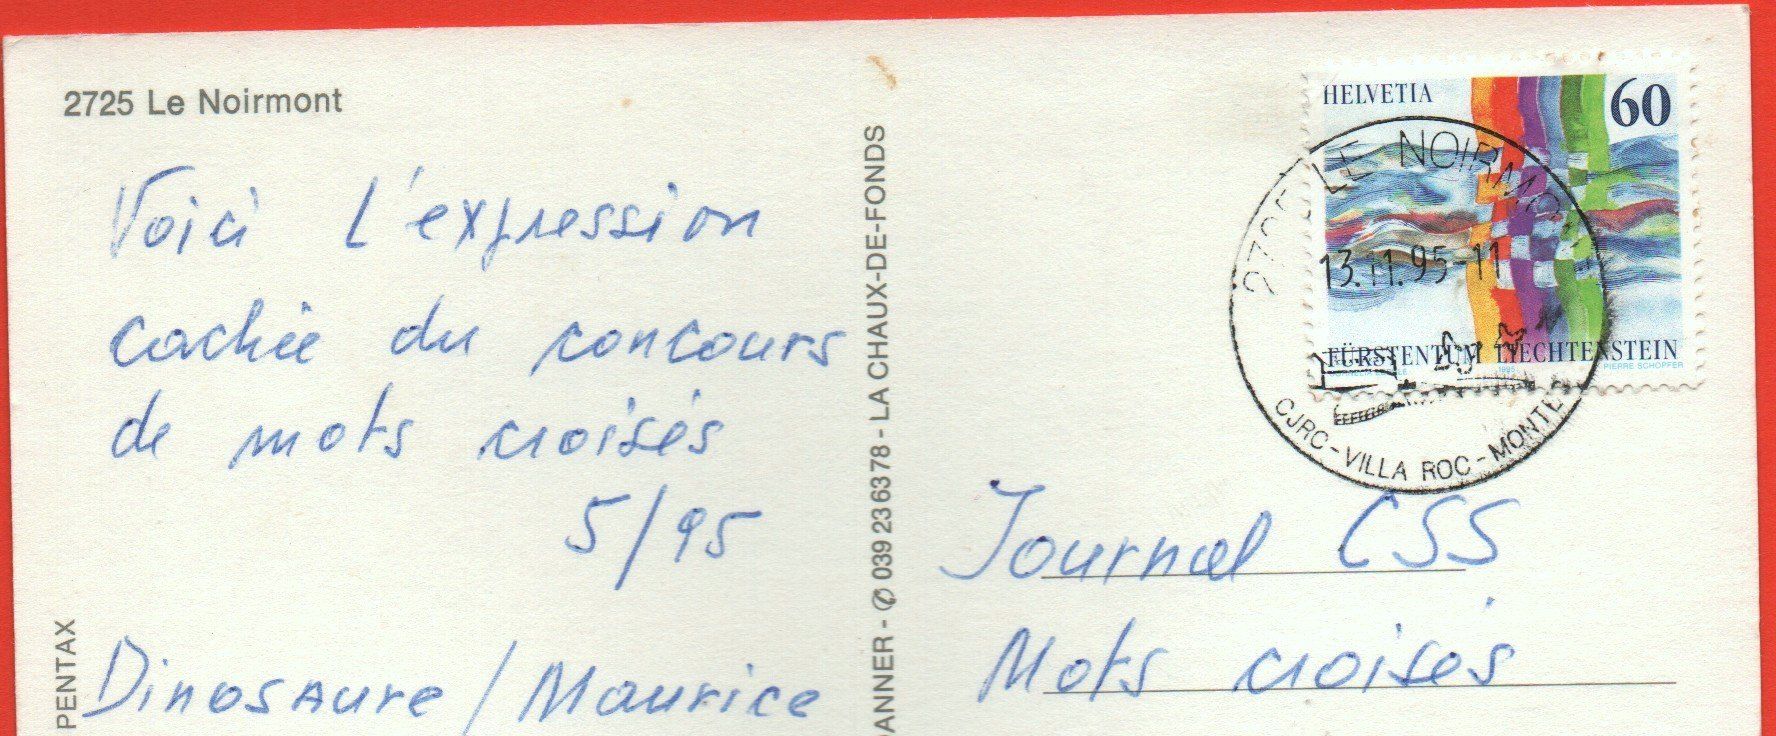 2725 Le Noirmont
Voici l'expression
cachée du concours
de mots croisés
5/95
Dinosaure / Maurice
PENTAX
ANNER - ✆ 039 23 63 78 - LA CHAUX-DE-FONDS
HELVETIA
60
LE NOIRMON
13.11.95-11
FÜRSTENTUM LIECHTENSTEIN
1995
PIERRE SCHOPFER
CJRC - VILLA ROC - MONTE
Journal CSS
Mots croisés